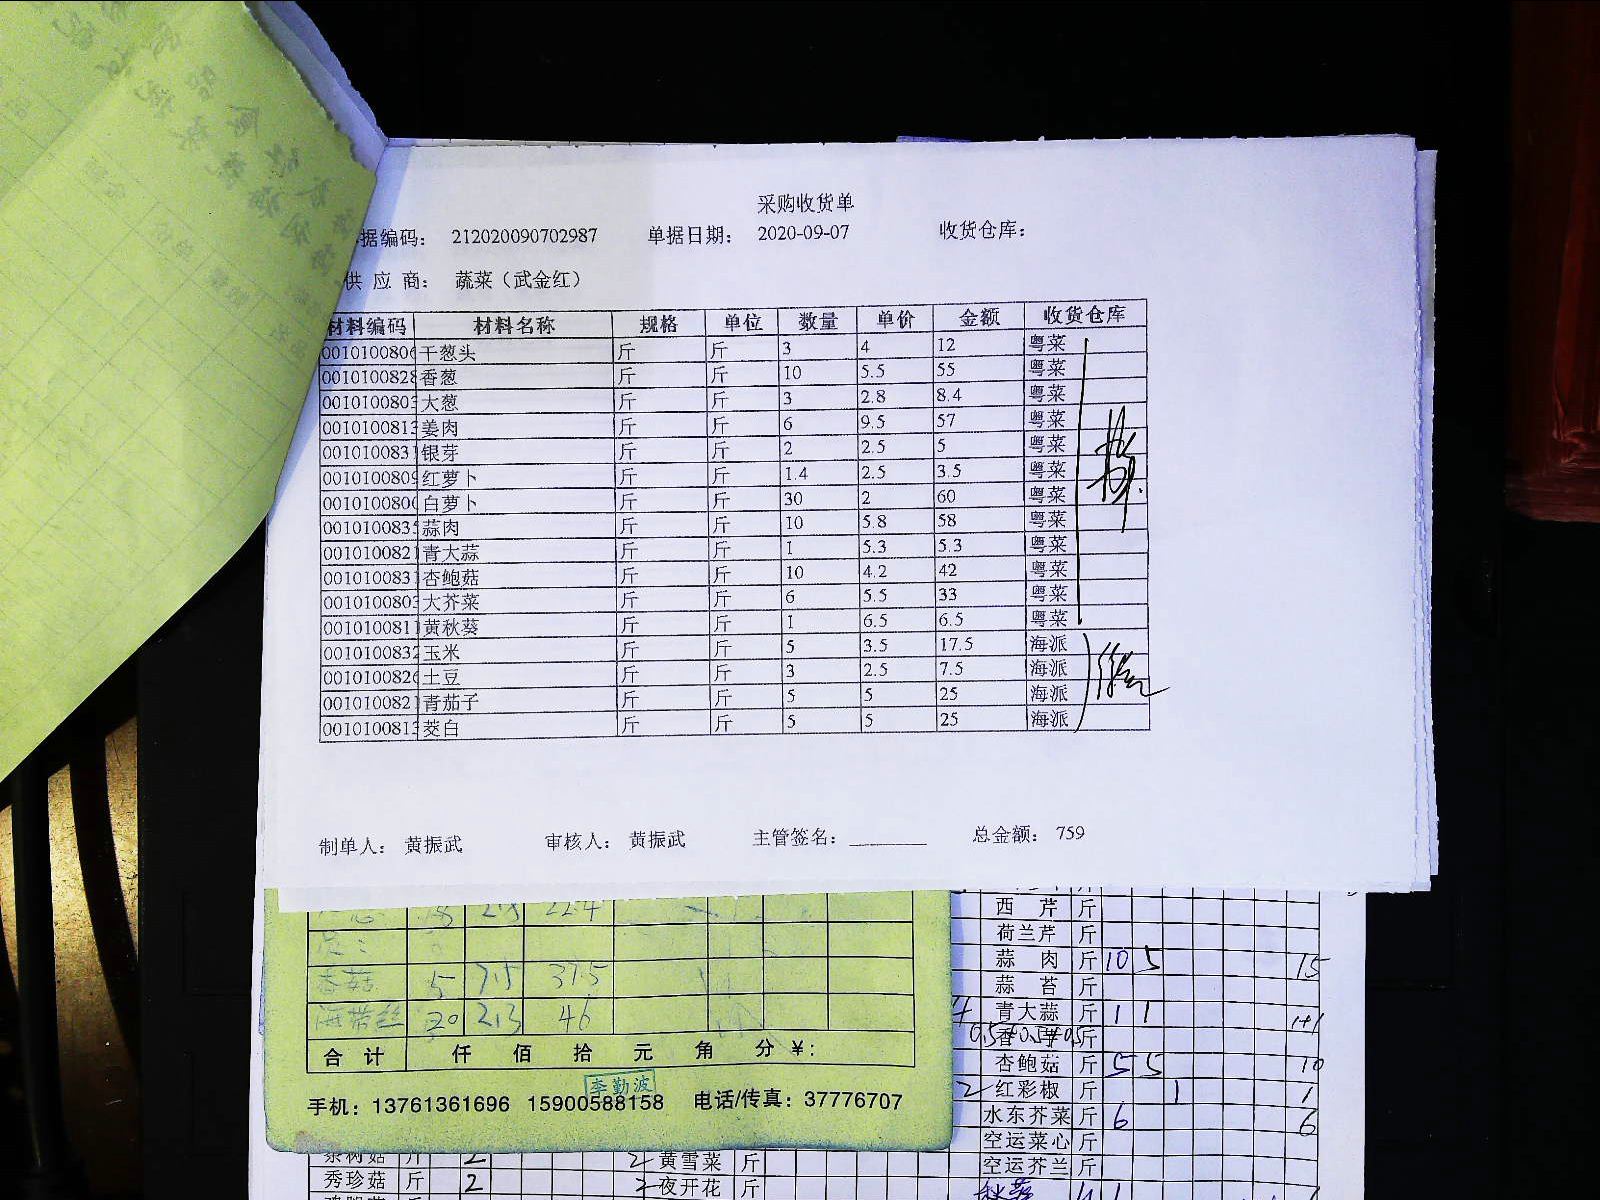 采购收货单
据编码: 212020090702987 单据日期: 2020-09-07 收货仓库:
供应商: 蔬菜（武金红）
材料编码 材料名称 规格 单位 数量 单价 金额 收货仓库
001010080 干葱头 斤 斤 3 4 12 粤菜
0010100828 香葱 斤 斤 10 5.5 55 粤菜
001010080 大葱 斤 斤 3 2.8 8.4 粤菜
001010081 姜肉 斤 斤 6 9.5 57 粤菜
001010083 银芽 斤 斤 2 2.5 5 粤菜
0010100809 红萝卜 斤 斤 1.4 2.5 3.5 粤菜
001010080 白萝卜 斤 斤 30 2 60 粤菜
001010083 蒜肉 斤 斤 10 5.8 58 粤菜
001010082 青大蒜 斤 斤 1 5.3 5.3 粤菜
001010083 杏鲍菇 斤 斤 10 4.2 42 粤菜
001010080 大芥菜 斤 斤 6 5.5 33 粤菜
001010081 黄秋葵 斤 斤 1 6.5 6.5 粤菜
001010083 玉米 斤 斤 5 3.5 17.5 海派
001010082 土豆 斤 斤 3 2.5 7.5 海派
001010082 青茄子 斤 斤 5 5 25 海派
001010081 茭白 斤 斤 5 5 25 海派
制单人: 黄振武 审核人: 黄振武 主管签名: 总金额: 759
22.4
香菇 5 7.5 37.5
海带丝 20 2.3 46
合计 仟 佰 拾 元 角 分 ¥:
李勤波
手机: 13761361696 15900588158 电话/传真: 37776707
西芹 斤
荷兰芹 斤
蒜肉 斤 10 5 15
蒜苔 斤
青大蒜 斤 1 1 1+1
斤
杏鲍菇 斤 5 5 10
红彩椒 斤 1 1
水东芥菜 斤 6 6
空运菜心 斤
空运芥兰 斤
茶树菇 斤 2 2 黄雪菜 斤
秀珍菇 斤 2 2 夜开花 斤